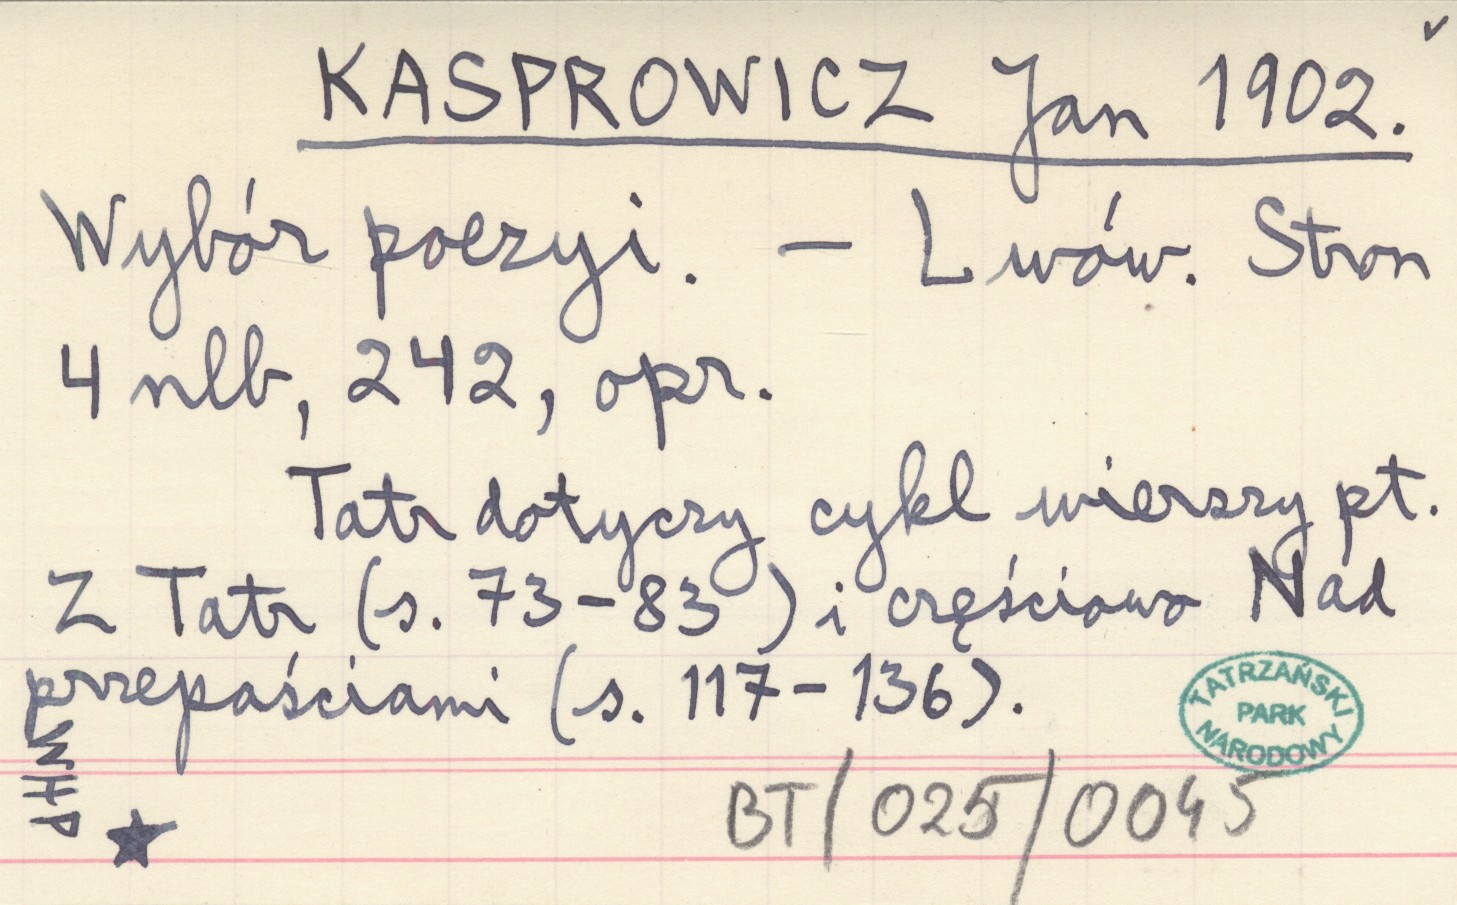 KASPROWICZ Jan 1902.
Wybór poezyi. – Lwów. Stron
4 nlb, 242, opr.
Tatr dotyczy cykl wierszy pt.
Z Tatr (s. 73–83) i częściowo Nad
przepaściami (s. 117–136).
TATRZAŃSKI
PARK
NARODOWY
WHP
BT/025/0045